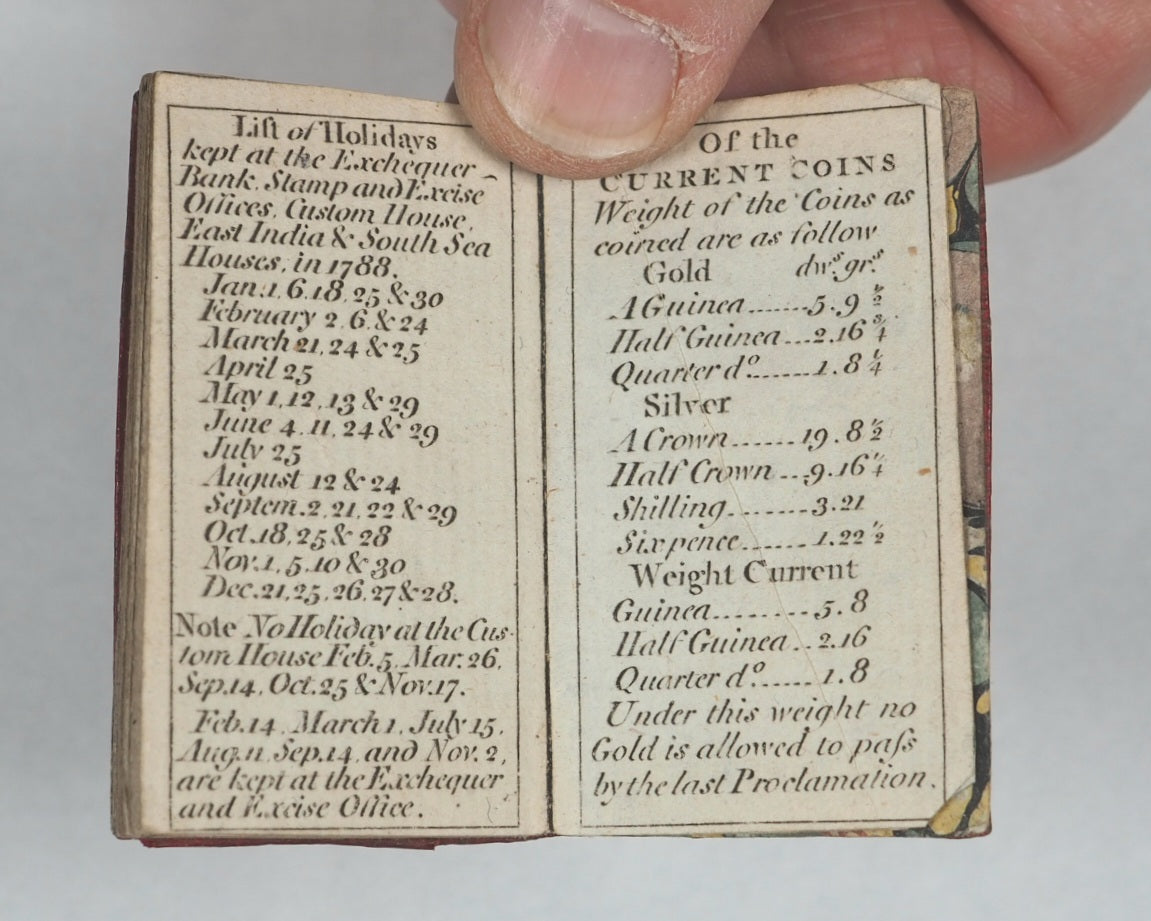 Liſt of Holidays
kept at the Exchequer
Bank, Stamp and Excise
Offices, Custom House,
East India & South Sea
Houses, in 1788.
Jan. 1, 6, 18, 25 & 30
February 2, 6, & 24
March 21, 24 & 25
April 25
May 1, 12, 13 & 29
June 4, 11, 24 & 29
July 25
August 12 & 24
Septem. 2, 21, 22 & 29
Oct. 18, 25 & 28
Nov. 1, 5, 10 & 30
Dec. 21, 25, 26, 27 & 28.
Note No Holiday at the Cus-
tom House Feb. 5, Mar. 26,
Sep. 14, Oct. 25 & Nov. 17.
Feb. 14, March 1, July 15,
Aug. 11, Sep. 14, and Nov. 2,
are kept at the Exchequer
and Excise Office.
Of the
CURRENT COINS
Weight of the Coins as
coined are as follow
Gold dwˢ. grˢ.
A Guinea.......5.9 ½
Half Guinea...2.16 ¾
Quarter dº......1.8 ¼
Silver
A Crown.......19.8 ½
Half Crown...9.16 ¼
Shilling........3.21
Sixpence.......1.22 ½
Weight Current
Guinea.........5.8
Half Guinea..2.16
Quarter dº......1.8
Under this weight no
Gold is allowed to paſs
by the last Proclamation.